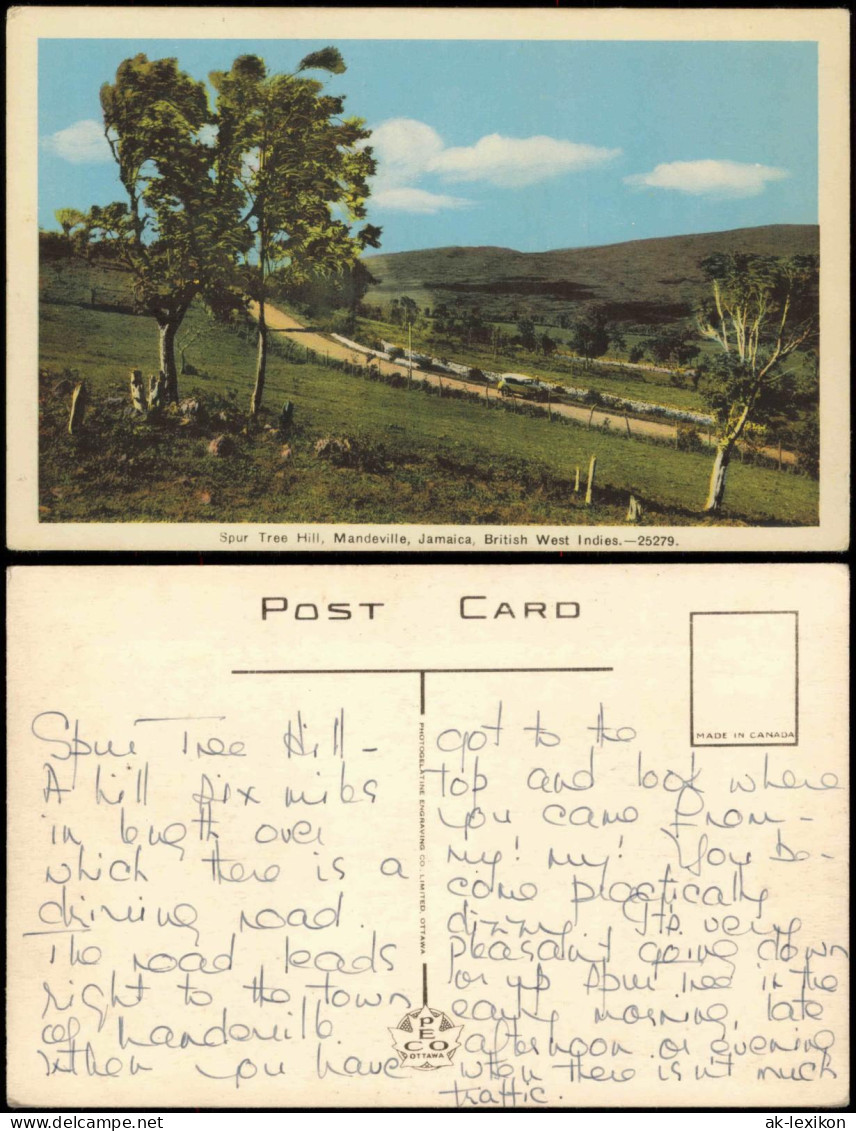 Spur Tree Hill, Mandeville, Jamaica, British West Indies.—25279.
POST CARD
MADE IN CANADA
PHOTOGELATINE ENGRAVING CO. LIMITED, OTTAWA
PECO
OTTAWA
Spur Tree Hill -
A hill six miles
in length over
which there is a
driving road.
The road leads
right to the town
of Mandeville.
When you have
got to the
top and look where
you came from -
my! my! You be-
come practically
dizzy. It's very
pleasant going down
or up Spur Tree in the
early morning, late
afternoon or evening
when there isn't much
traffic.
ak-ansichtskarten.de
ak-lexikon